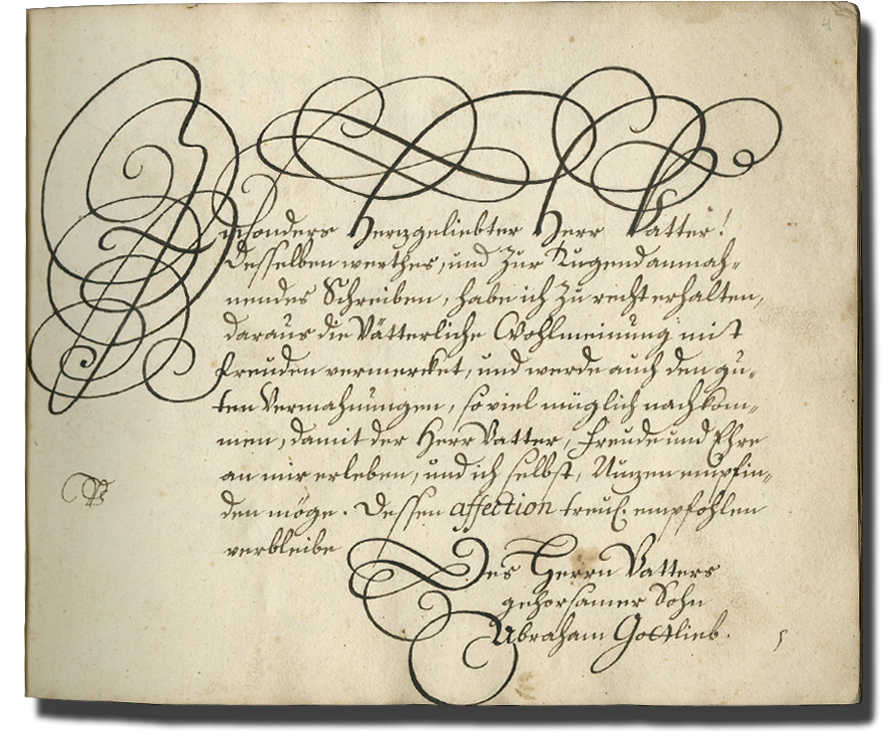 Insonders Hertzgeliebter Herr Vatter!
Desselben werthes, und zur Tugend anmah-
nendes Schreiben, habe ich zu recht erhalten,
daraus die Vätterliche Wohlmeinung mit
freuden vermercket, und werde auch den gu-
ten Vermahnungen, so viel müglich nachkom-
men, damit der Herr Vatter, Freude und Ehre
an mir erleben, und ich selbst, Nutzen empfin-
den möge. Dessen affection treul. empfohlen
verbleibe
Des Herrn Vatters
gehorsamer Sohn
Abraham Gottlieb.